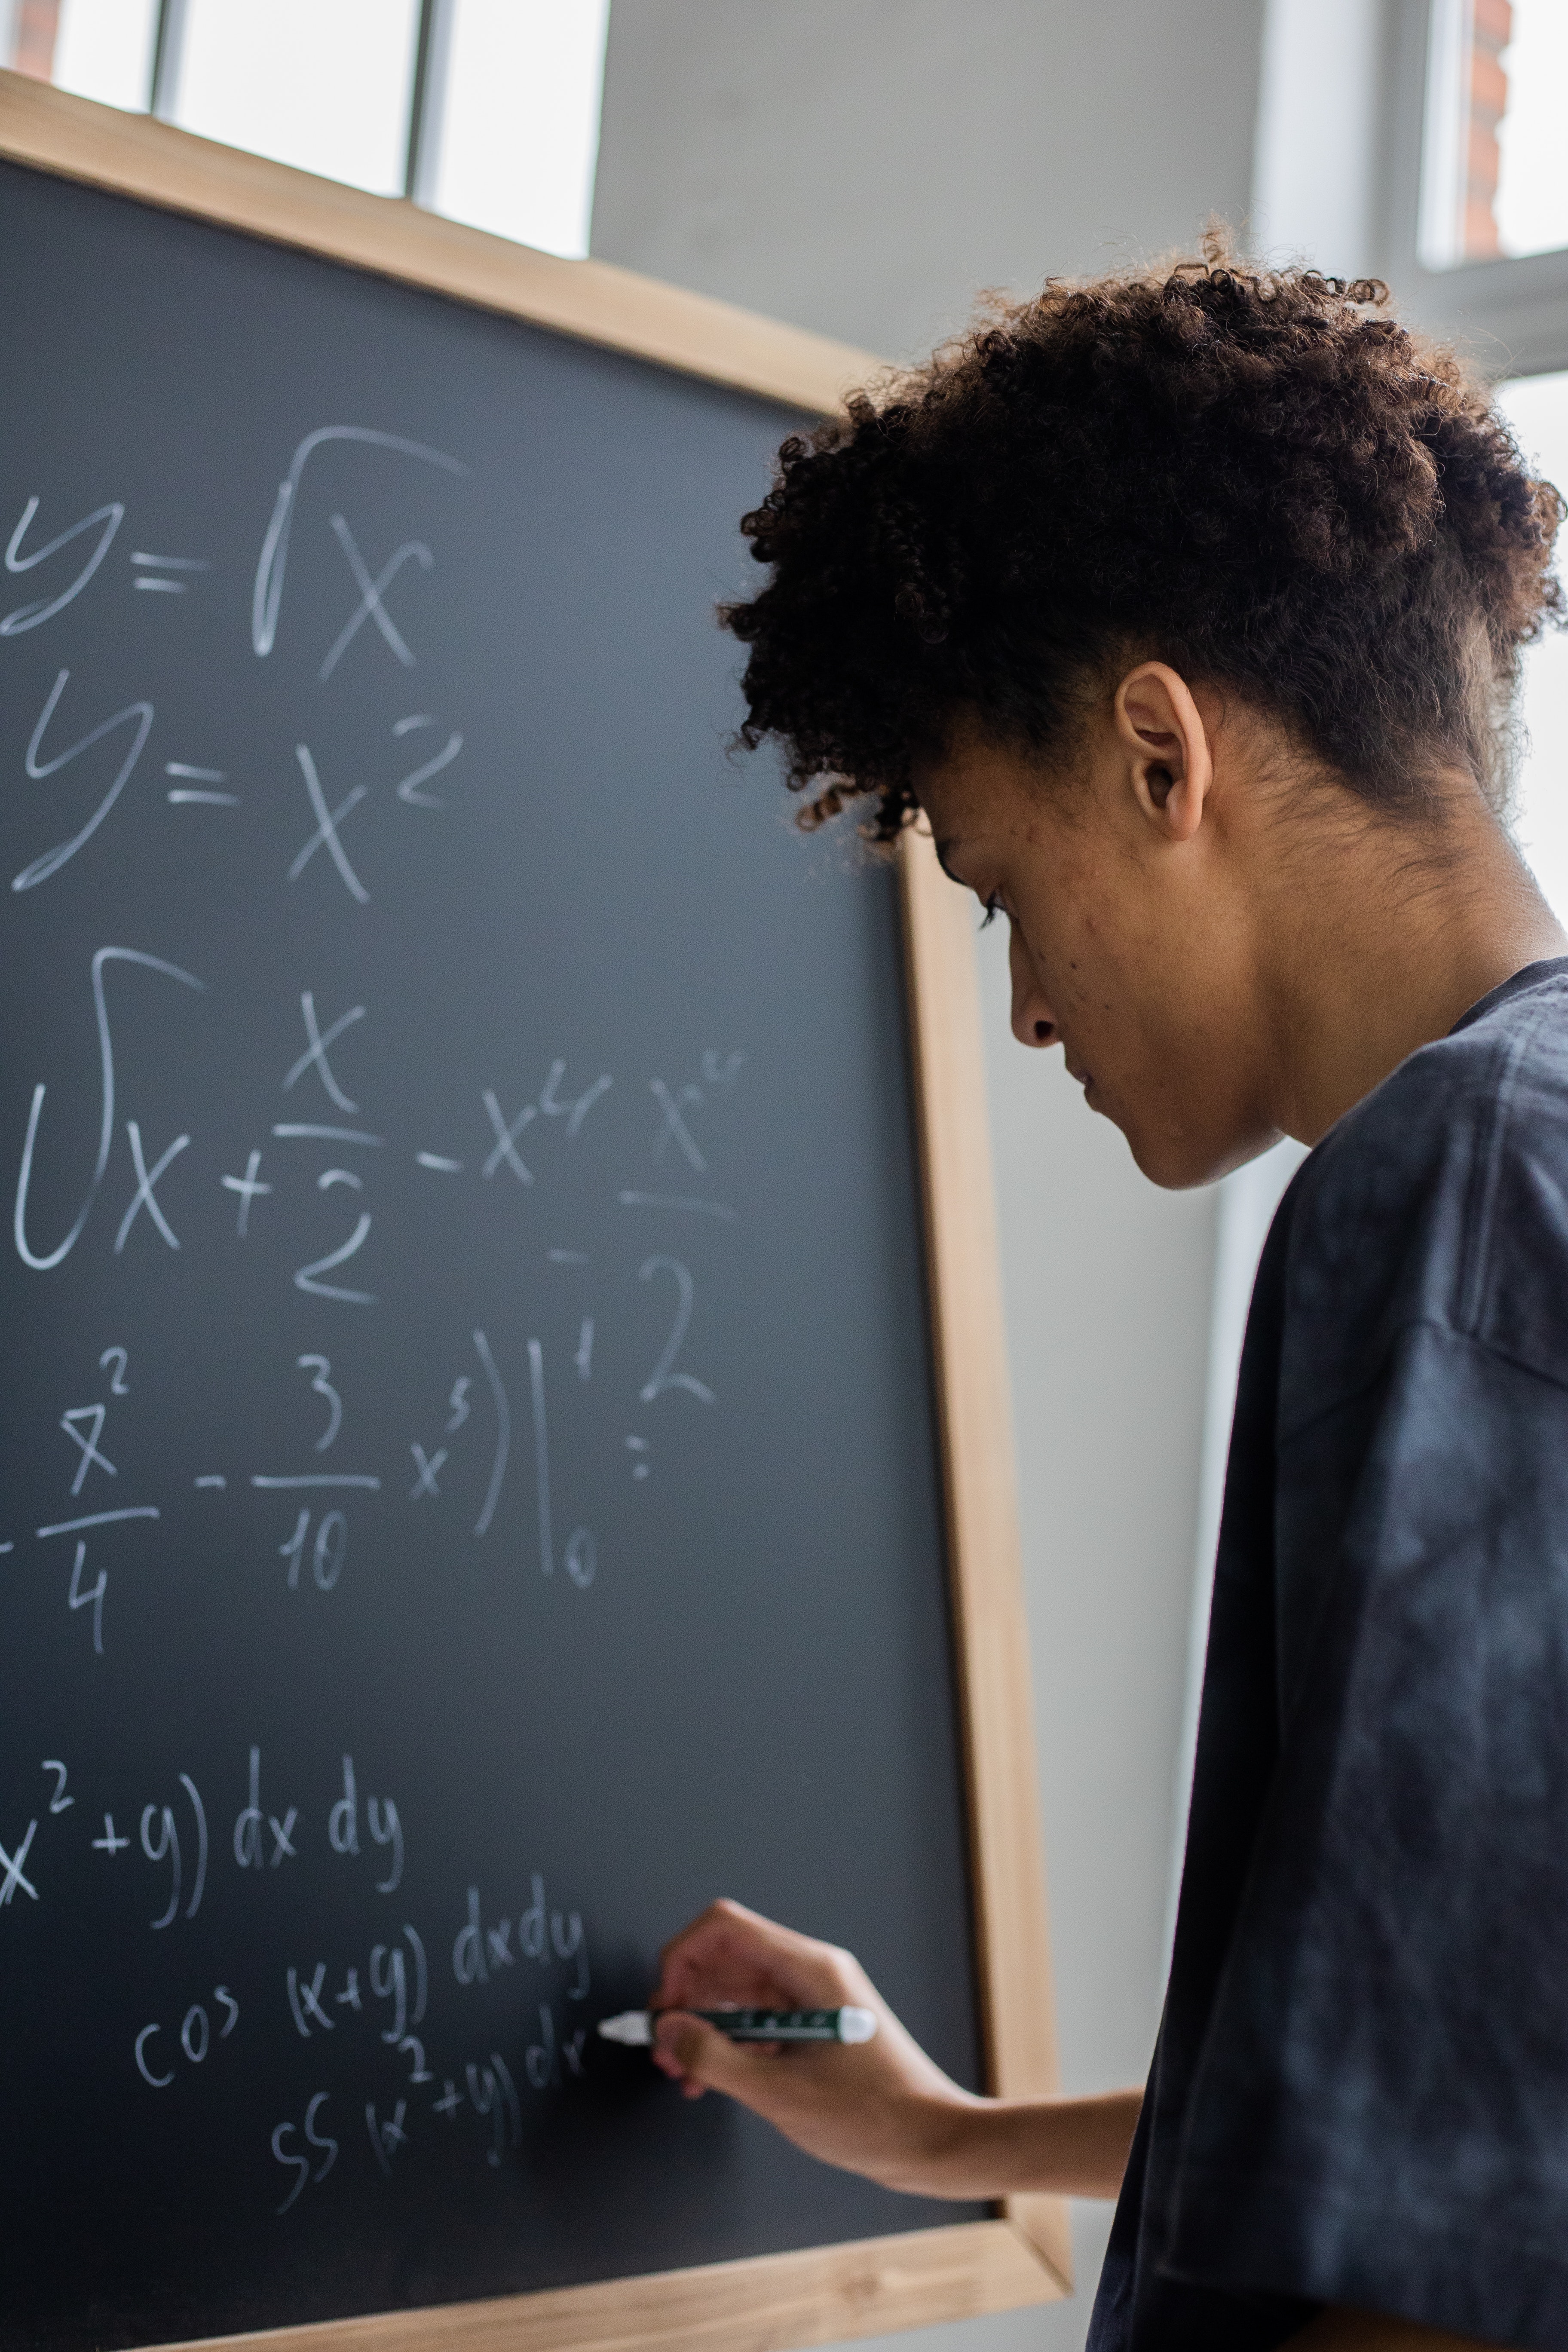 y = √x
y = x²
∫x + x/2 - x⁴ - x⁴/2
x²/4 - 3/10 x⁵)|₀¹ =
x² + y) dx dy
cos (x+y) dxdy
SS (x² + y) dx